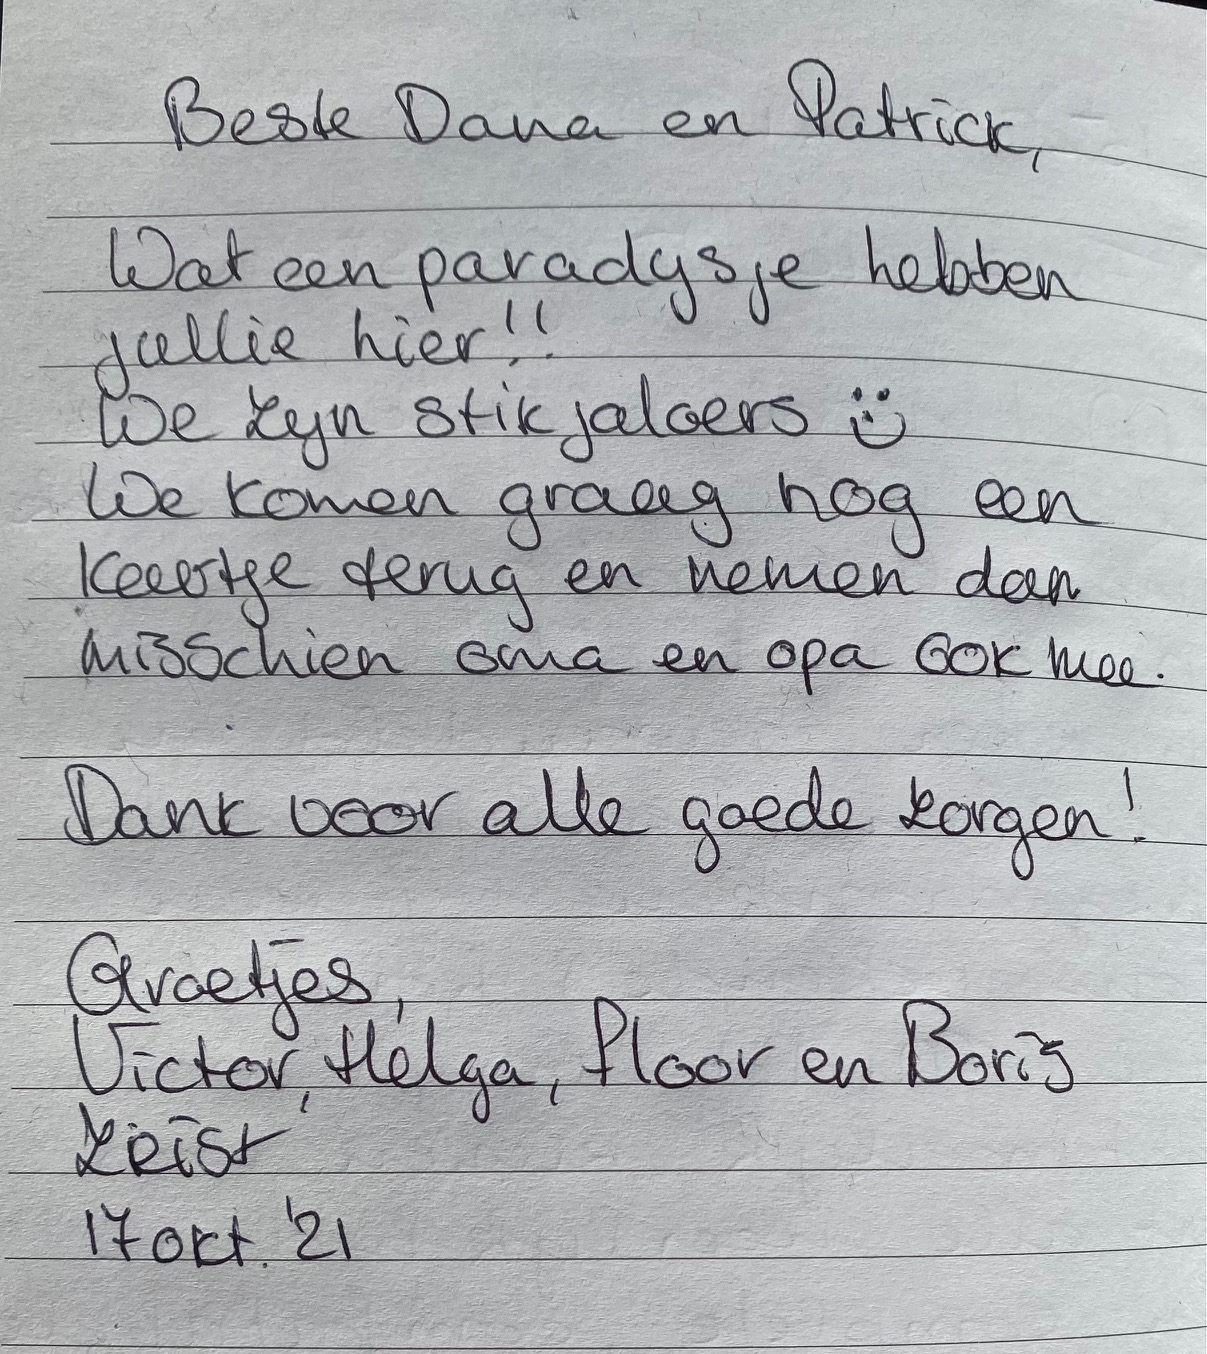 Beste Dana en Patrick,
Wat een paradijsje hebben
jullie hier!!
We zijn stikjaloers ü
We komen graag nog een
keertje terug en nemen dan
misschien oma en opa ook mee.
Dank voor alle goede zorgen!
Groetjes,
Victor, Helga, Floor en Boris
Zeist
17 okt. '21